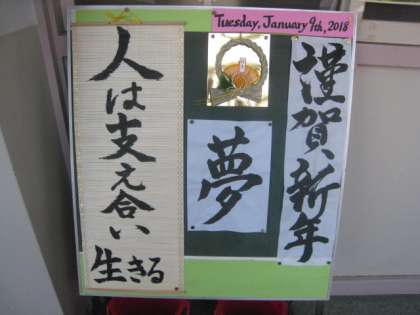 Tuesday, January 9th, 2018
謹賀新年
夢
人は支え合い
生きる